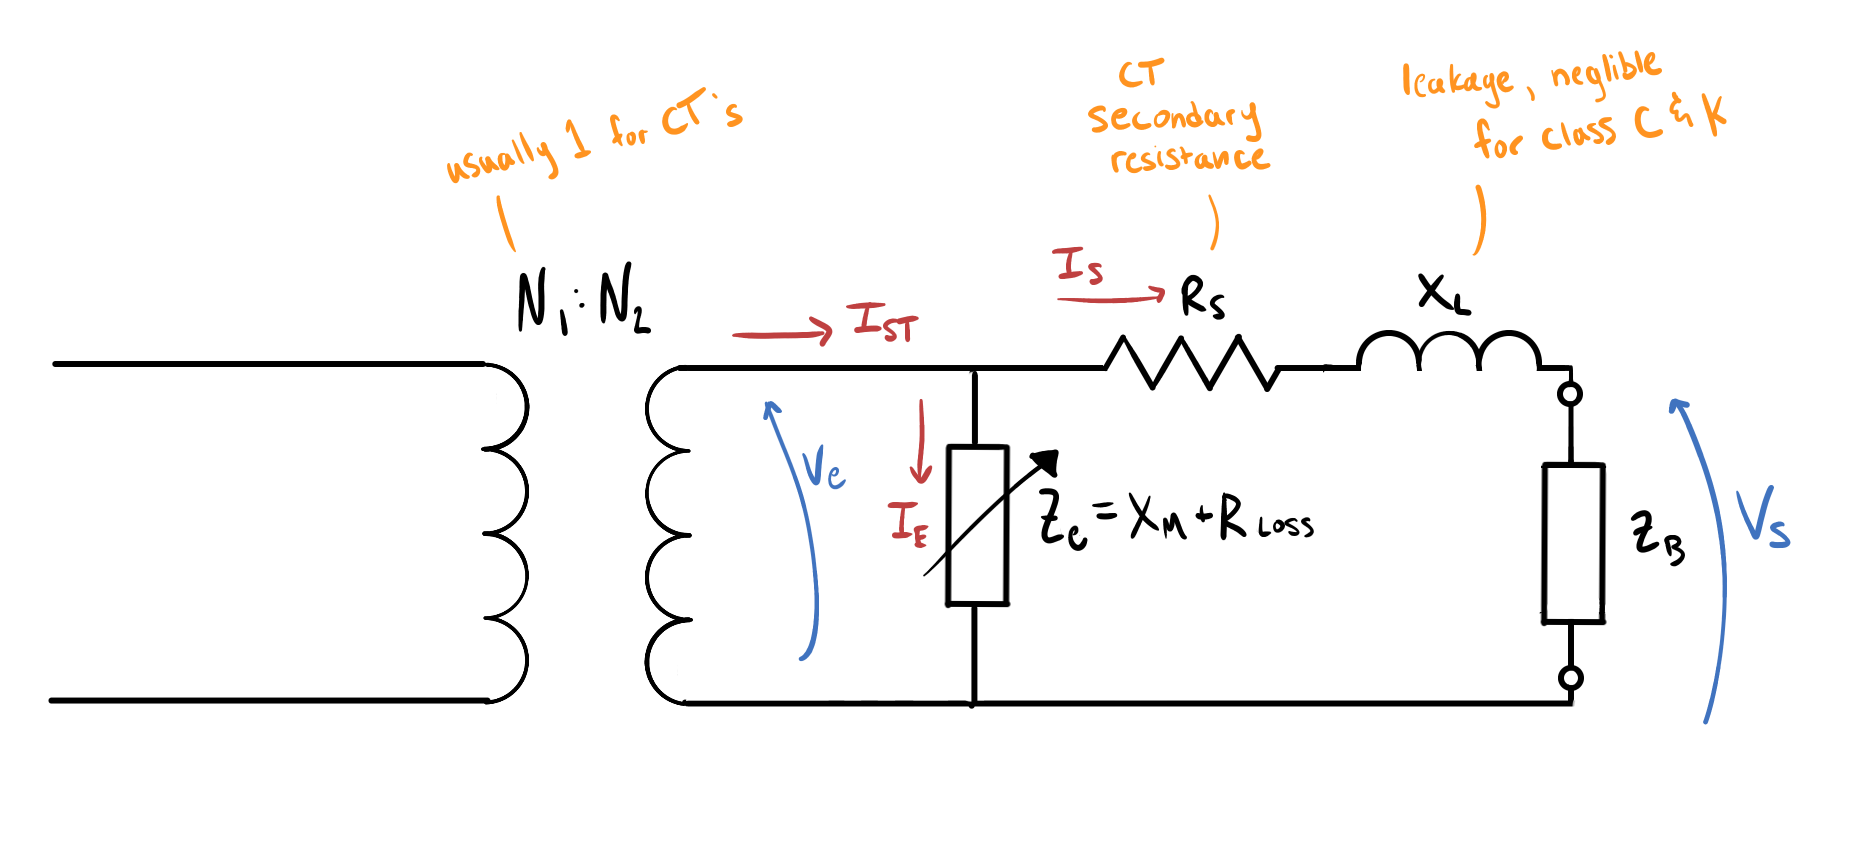 usually 1 for CT's
CT
secondary
resistance
leakage, neglible
for class C & K
N₁:N₂
I_ST
I_S
R_S
X_L
V_e
I_E
Z_e = X_M + R_LOSS
Z_B
V_S